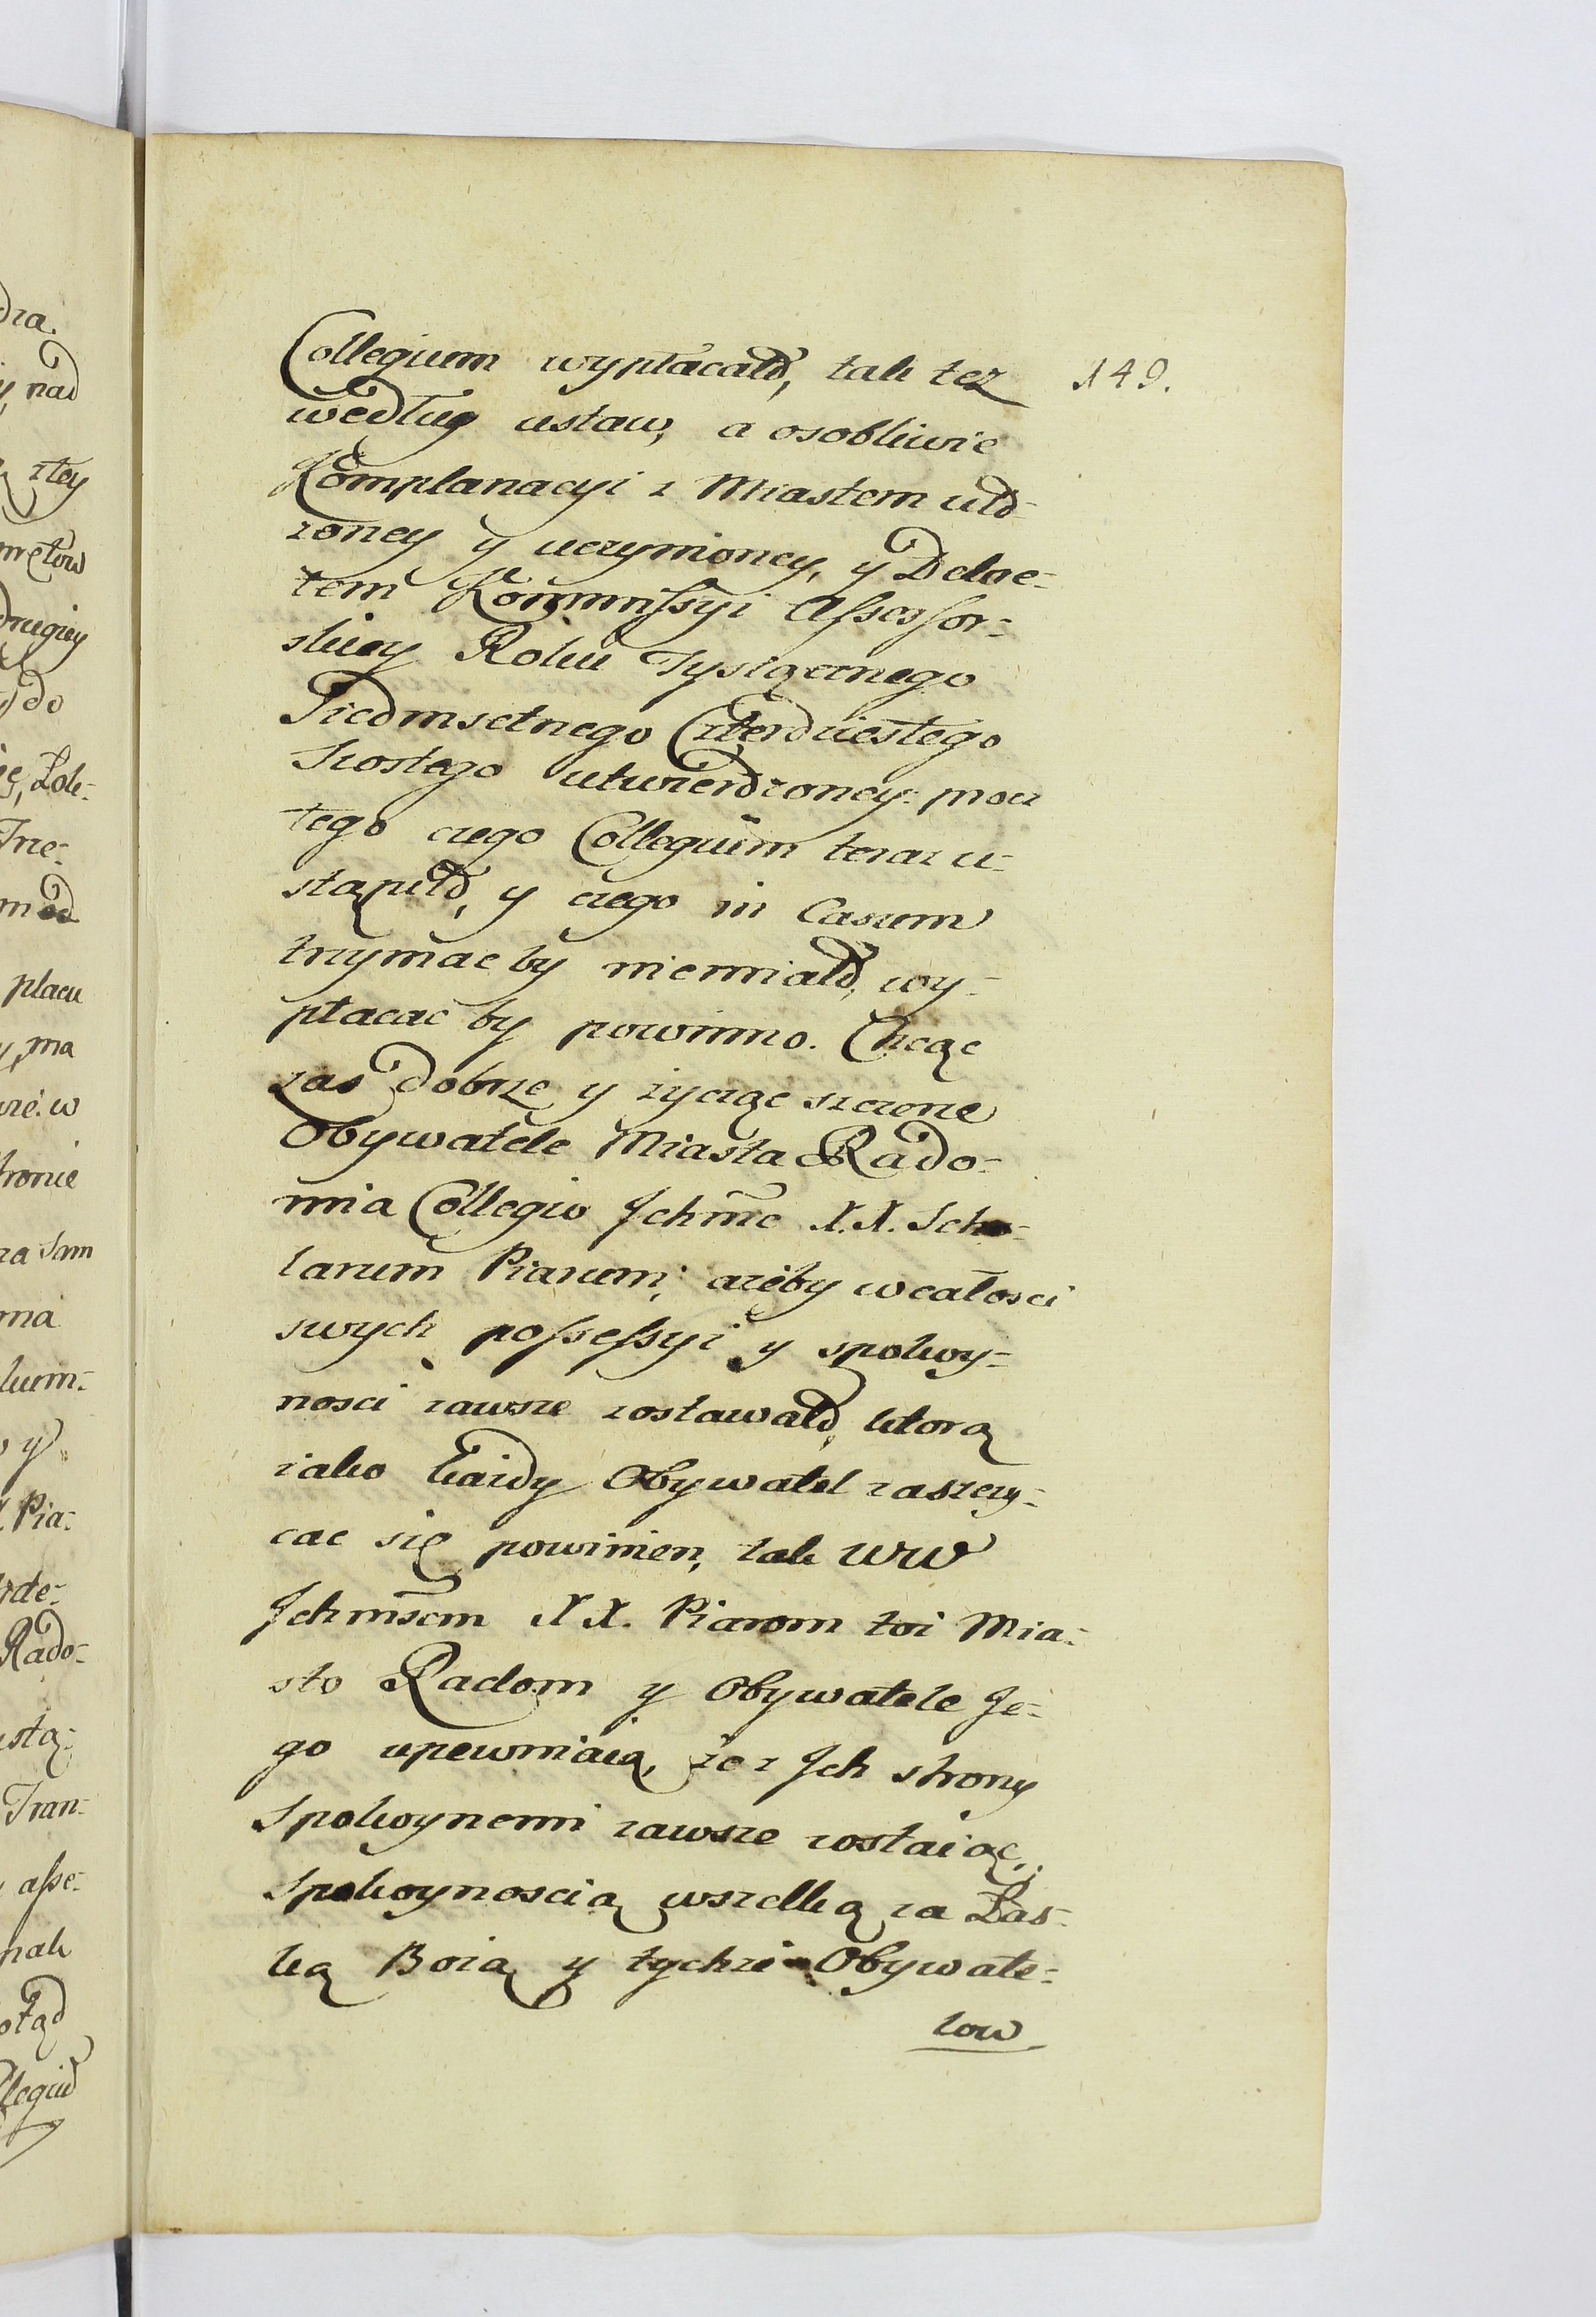 149.
Collegium wypłacało, tak też
według ustaw, a osobliwie
Komplanacyi z Miastem uło-
żoney y uczynioney, y Dekre-
tem Kommissyi Assessor-
skiey Roku Tysiącznego
Siedmsetnego Czterdziestego
Szostego utwierdzoney: procz
tego czego Collegium teraz u-
stąpiło, y czego in Casum
trzymac by niemiało, wy-
płacać by powinno. Chcąc
zas dobrze y życząc szczerze
Obywatele Miasta Rado-
mia Collegio Jchmc X.X. Scho-
larum Piarum; ażeby wcałosci
swych possessyi y spokoy-
nosci zawsze zostawało, ktorą
iako każdy Obywatel zaszczy-
cac się powinien, tak WW
Jchmscm XX. Piarom toż Mia-
sto Radom y Obywatele Je-
go upewniaią, że z Jch strony
Spokoynemi zawsze zostaiąc,
Spokoynoscią wszelką za Łas-
ką Bożą y tychże Obywate-
low